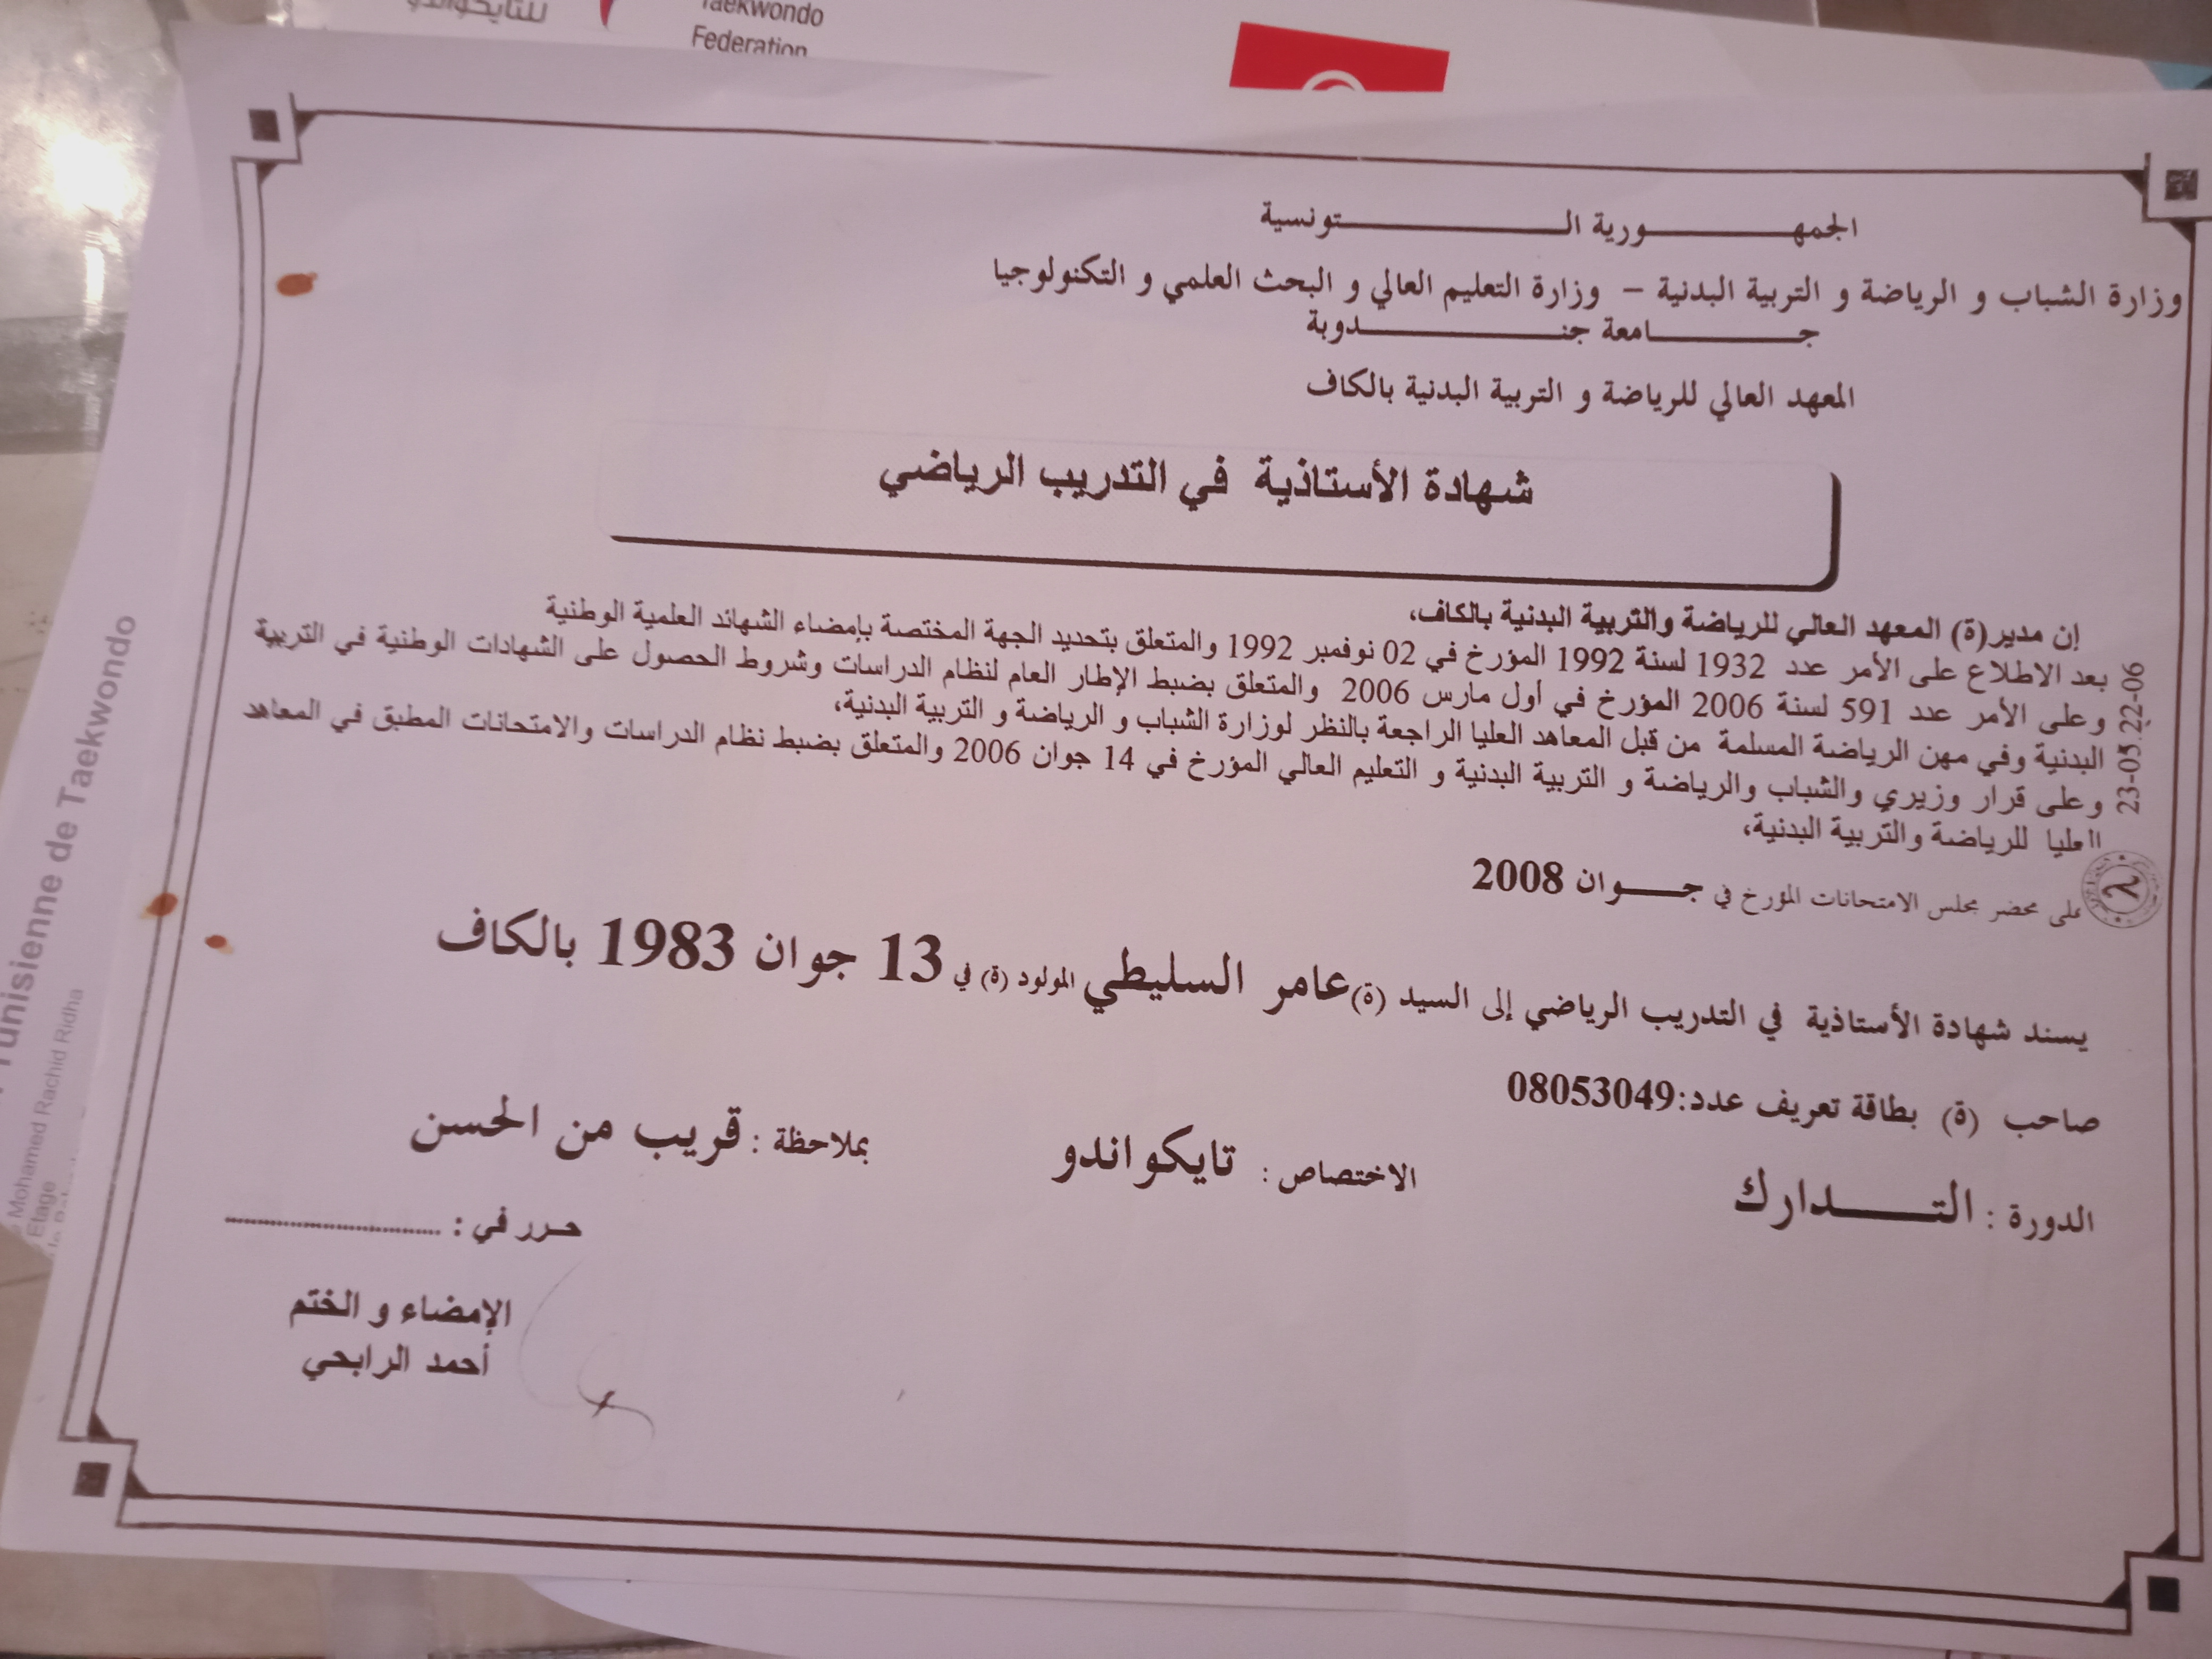 للتايكواندو
Taekwondo
Federation
الجمهـــــورية الـــــــتونسية
وزارة الشباب و الرياضة و التربية البدنية – وزارة التعليم العالي و البحث العلمي و التكنولوجيا
جـــــامعة جنـــــــدوبة
المعهد العالي للرياضة و التربية البدنية بالكاف
شهادة الأستاذية في التدريب الرياضي
إن مدير(ة) المعهد العالي للرياضة والتربية البدنية بالكاف،
بعد الاطلاع على الأمر عدد 1932 لسنة 1992 المؤرخ في 02 نوفمبر 1992 والمتعلق بتحديد الجهة المختصة بإمضاء الشهائد العلمية الوطنية
وعلى الأمر عدد 591 لسنة 2006 المؤرخ في أول مارس 2006 والمتعلق بضبط الإطار العام لنظام الدراسات وشروط الحصول على الشهادات الوطنية في التربية
البدنية وفي مهن الرياضة المسلمة من قبل المعاهد العليا الراجعة بالنظر لوزارة الشباب و الرياضة و التربية البدنية،
وعلى قرار وزيري والشباب والرياضة و التربية البدنية و التعليم العالي المؤرخ في 14 جوان 2006 والمتعلق بضبط نظام الدراسات والامتحانات المطبق في المعاهد
العليا للرياضة والتربية البدنية،
على محضر مجلس الامتحانات المؤرخ في جـــوان 2008
يسند شهادة الأستاذية في التدريب الرياضي إلى السيد (ة) عامر السليطي المولود (ة) في 13 جوان 1983 بالكاف
صاحب (ة) بطاقة تعريف عدد:08053049
الدورة : التـــــدارك الاختصاص : تايكواندو بملاحظة : قريب من الحسن
حرر في : ........................
الإمضاء و الختم
أحمد الرابحي
23-05.22-06
Tunisienne de Taekwondo
Mohamed Rachid Ridha
Etage